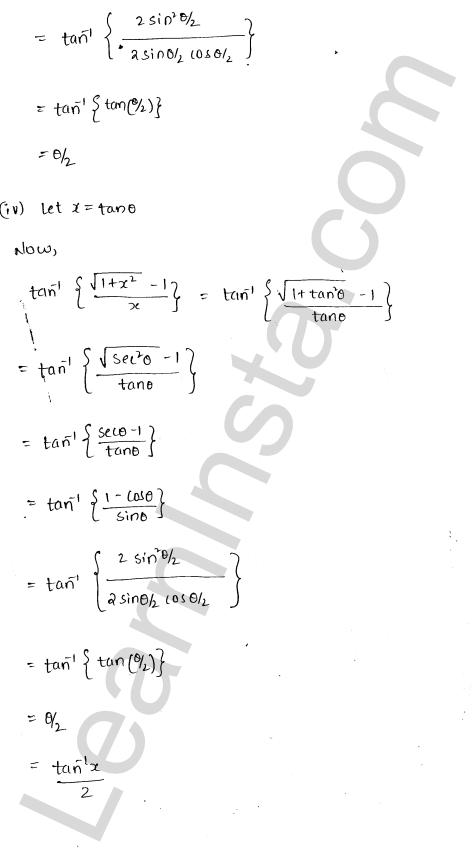 = tan⁻¹ { 2 sin²θ/2 / 2 sinθ/2 cosθ/2 }
= tan⁻¹ { tan(θ/2) }
= θ/2
(iv) Let x = tanθ
Now,
tan⁻¹ { √(1+x²) - 1 / x } = tan⁻¹ { √(1+tan²θ) - 1 / tanθ }
= tan⁻¹ { √(sec²θ) - 1 / tanθ }
= tan⁻¹ { secθ - 1 / tanθ }
= tan⁻¹ { 1 - cosθ / sinθ }
= tan⁻¹ { 2 sin²θ/2 / 2 sinθ/2 cosθ/2 }
= tan⁻¹ { tan(θ/2) }
= θ/2
= tan⁻¹x / 2
LearnInsta.com